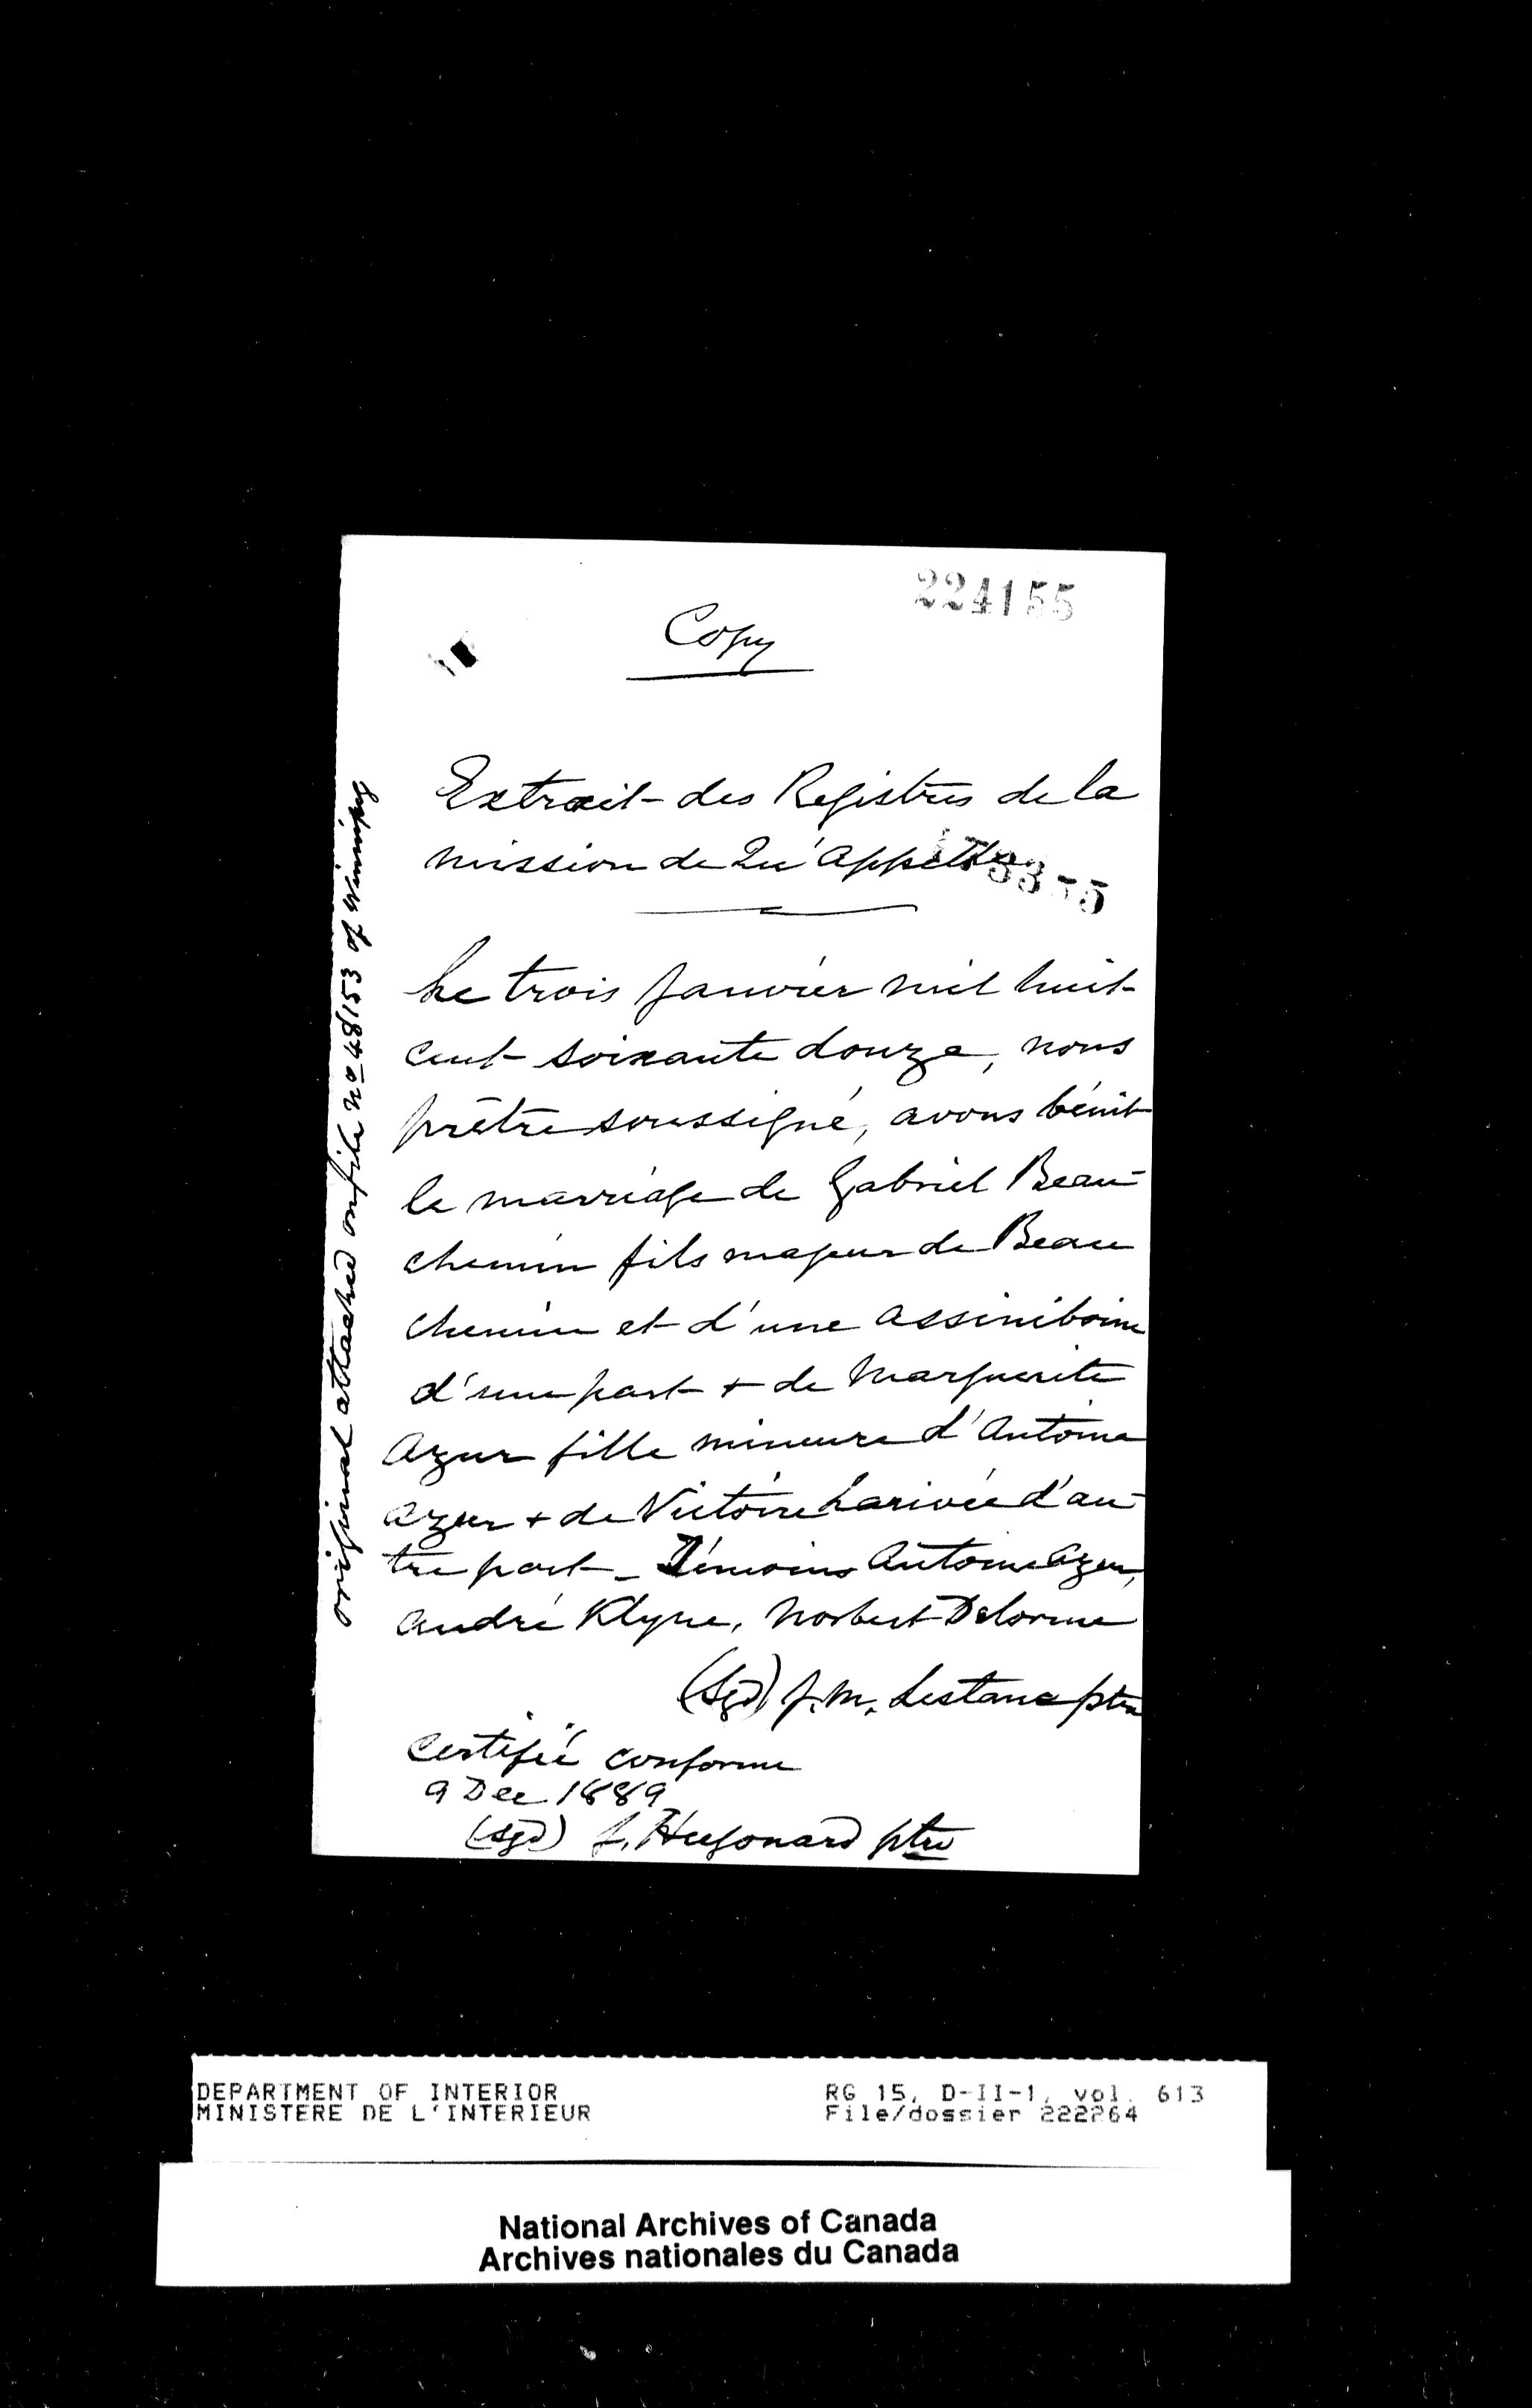 224155
Copy
Extrait des Registres de la
mission de Qu'Appelle
Le trois Janvier mil huit
cent soixante douze, nous
prêtre soussigné, avons bénit
le marriage de Gabriel Beau-
chemin fils majeur de Beau
chemin et d'une assiniboine
d'une part + de Marguerite
Azur fille mineure d'Antoine
Azur + de Victoire Larivée d'au-
tre part - Témoins Antoine Azur,
André Klyne, Norbert Delorme
(Sgd) J. M. Lestanc ptre
Certifié conforme
9 Dec 1889
(sgd) J. Hugonard ptre
original attached on file no 48153 of Winnipeg
DEPARTMENT OF INTERIOR
MINISTERE DE L'INTERIEUR
RG 15, D-II-1, vol. 613
File/dossier 222264
National Archives of Canada
Archives nationales du Canada